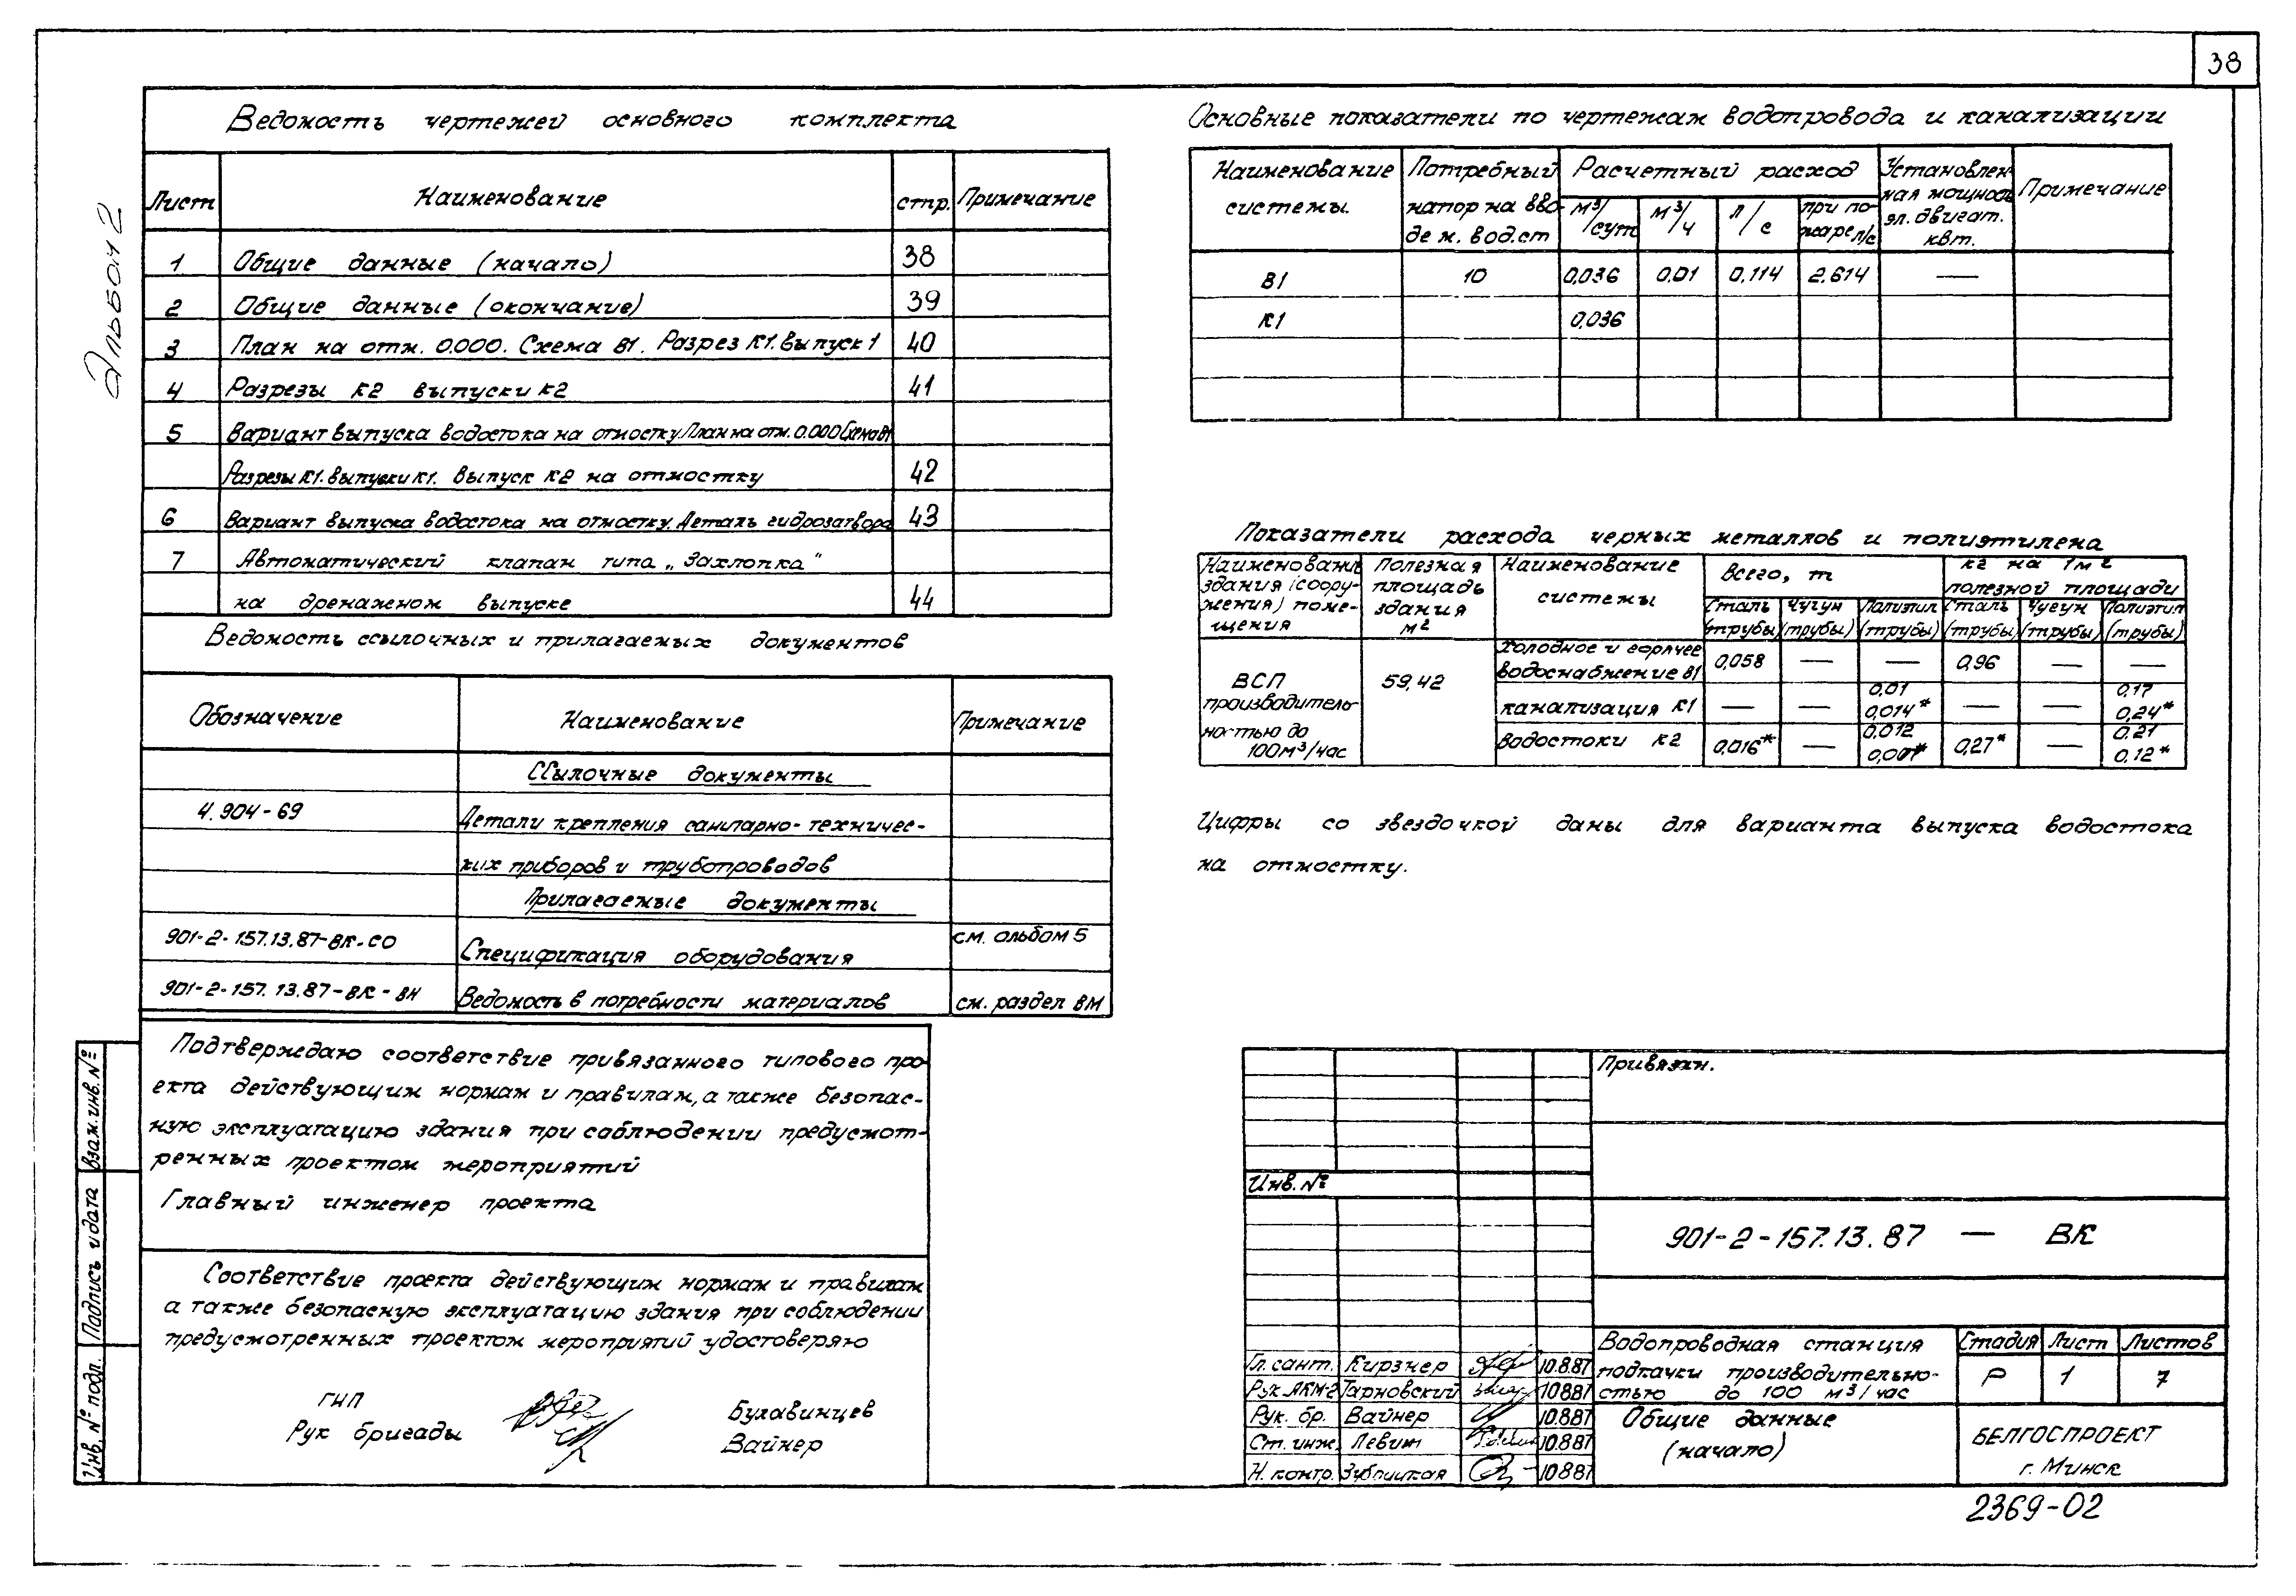 38
Альбом 2
Ведомость чертежей основного комплекта
Лист Наименование стр. Примечание
1 Общие данные (начало) 38
2 Общие данные (окончание) 39
3 План на отм. 0.000. Схема В1. Разрез К1. Выпуск 1 40
4 Разрезы К2 выпуски К2 41
5 Вариант выпуска водостока на отмостку. План на отм. 0.000 Схема В1
Разрезы К1. Выпуски К1. Выпуск К2 на отмостку 42
6 Вариант выпуска водостока на отмостку. Деталь гидрозатвора 43
7 Автоматический клапан типа „Захлопка“
на дренажном выпуске 44
Ведомость ссылочных и прилагаемых документов
Обозначение Наименование Примечание
Ссылочные документы
4.904-69 Детали крепления санитарно-техничес-
ких приборов и трубопроводов
Прилагаемые документы
901-2-157.13.87-ВК-СО Спецификация оборудования см. альбом 5
901-2-157.13.87-ВК-ВМ Ведомость в потребности материалов см. раздел ВМ
Подтверждаю соответствие привязанного типового про-
екта действующим нормам и правилам, а также безопас-
ную эксплуатацию здания при соблюдении предусмот-
ренных проектом мероприятий
Главный инженер проекта
Соответствие проекта действующим нормам и правилам
а также безопасную эксплуатацию здания при соблюдении
предусмотренных проектом мероприятий удостоверяю
ГИП Булавинцев
Рук бригады Вайнер
Взам. инв. №
Подпись и дата
Инв. № подл.
Основные показатели по чертежам водопровода и канализации
Наименование системы. Потребный напор на вво-де м. вод.ст Расчетный расход Установлен-ная мощность эл. двигат. квт. Примечание
м³/сут м³/ч л/с при по-жаре л/с
В1 10 0,036 0,01 0,114 2,614 —
К1 0,036
Показатели расхода черных металлов и полиэтилена
Наименование здания (соору-жения) поме-щения Полезная площадь здания м² Наименование системы Всего, т кг на 1м² полезной площади
Сталь (трубы) Чугун (трубы) Полиэтил (трубы) Сталь (трубы) Чугун (трубы) Полиэтил (трубы)
ВСП производитель-ностью до 100м³/час 59,42
Холодное и горячее водоснабжение В1 0,058 — — 0,96 — —
канализация К1 — — 0,01 0,014* — — 0,17 0,24*
водостоки К2 0,016* — 0,012 0,007* 0,27* — 0,21 0,12*
Цифры со звездочкой даны для варианта выпуска водостока
на отмостку.
Привязан.
Инв. №
901-2-157.13.87 — ВК
Гл. сант. Кирзнер 10.8.87
Рук. АКМ-2 Тарновский 10.8.87
Рук. бр. Вайнер 10.8.87
Ст. инж. Левит 10.8.87
Н. контр. Зубпицкая 10.8.87
Водопроводная станция
подкачки производительно-
стью до 100 м³/час
Стадия Лист Листов
Р 1 7
Общие данные
(начало)
БЕЛГОСПРОЕКТ
г. Минск
2369-02